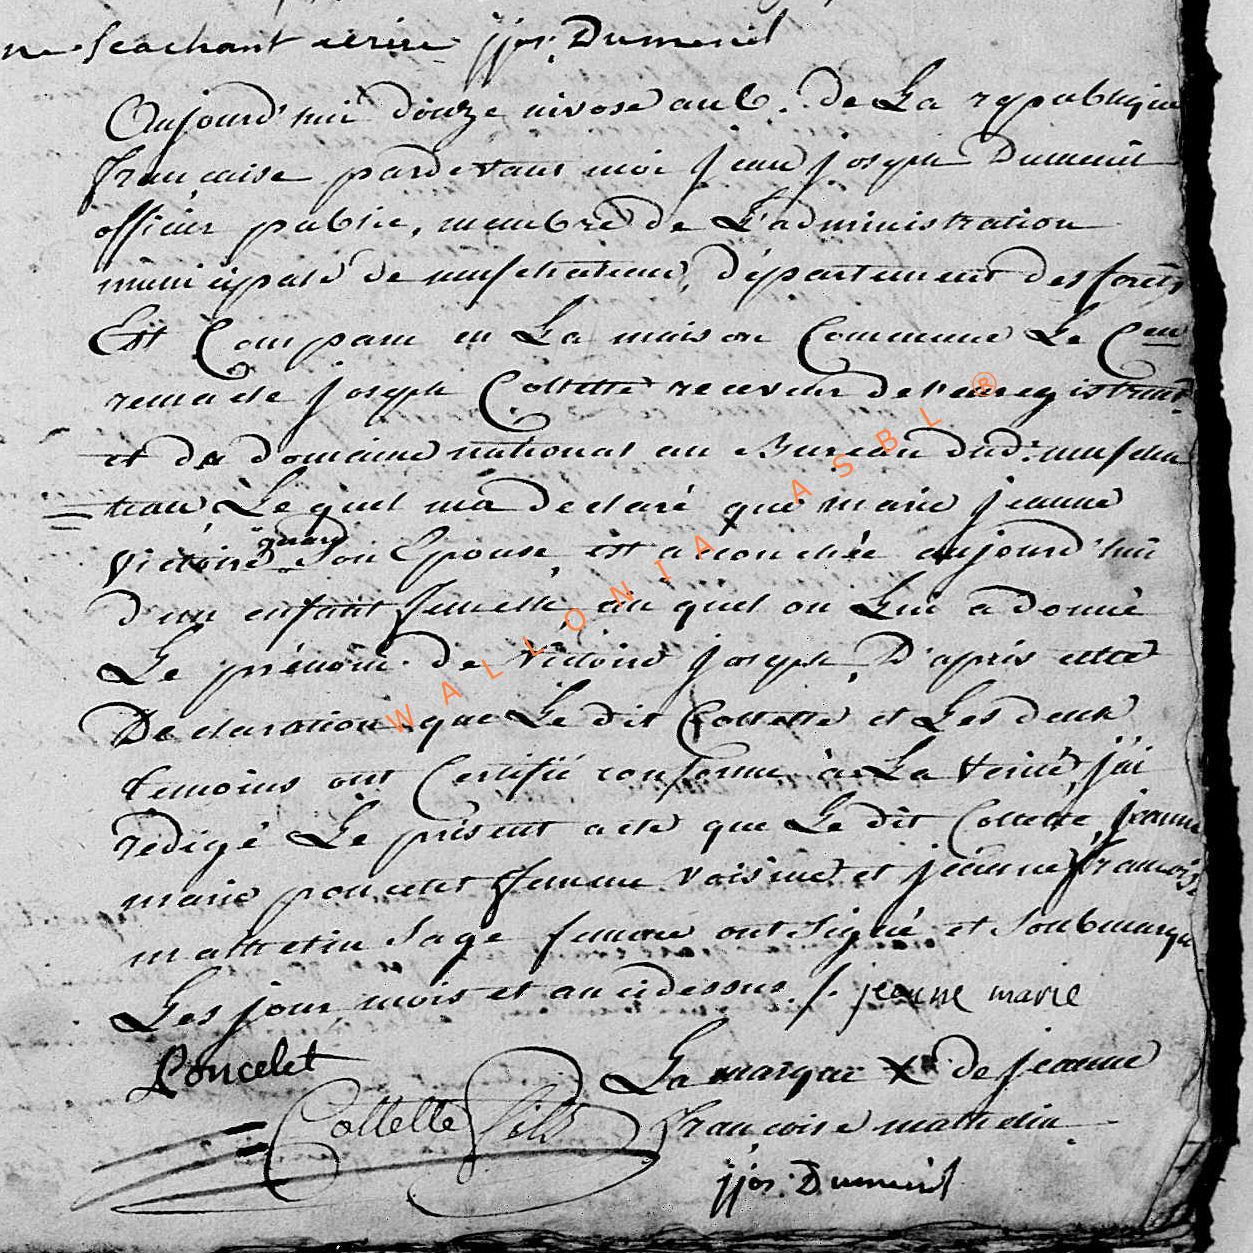 ne scachant ecrire jjos. Dumenil
Aujourd'hui douze nivose an 6.e de La republique
française pardevant moi jean joseph Dumenil
officier public, membre de L'administration
municipale de neufchateau, département des forêts
Est Comparu en La maison Commune Le Cen
remacle joseph Collette receveur de l'enregistremt
et du domaine national au Bureau dud: neufcha
teau Lequel m'a declaré que marie jeanne
Victoire son Epouse est accouchée aujourd'hui
d'un enfant femelle, au quel on Lui a donné
Le prénom de Victoire joseph, D'après cette
Declaration que Le dit Collette et Les deux
temoins ont Certifié conforme à La Verité, j'ai
redigé Le présent acte que Le dit Collette, jeanne
marie poncelet femme voisine et jeanne françoise
mathelin sage femme ont signé et soubmarqué
Les jour mois et an cidessus ./. jeanne marie
Poncelet
La marque X de jeanne
Collette fils
françoise mathelin
jjos. Dumenil
WALLONIA ASBL ®